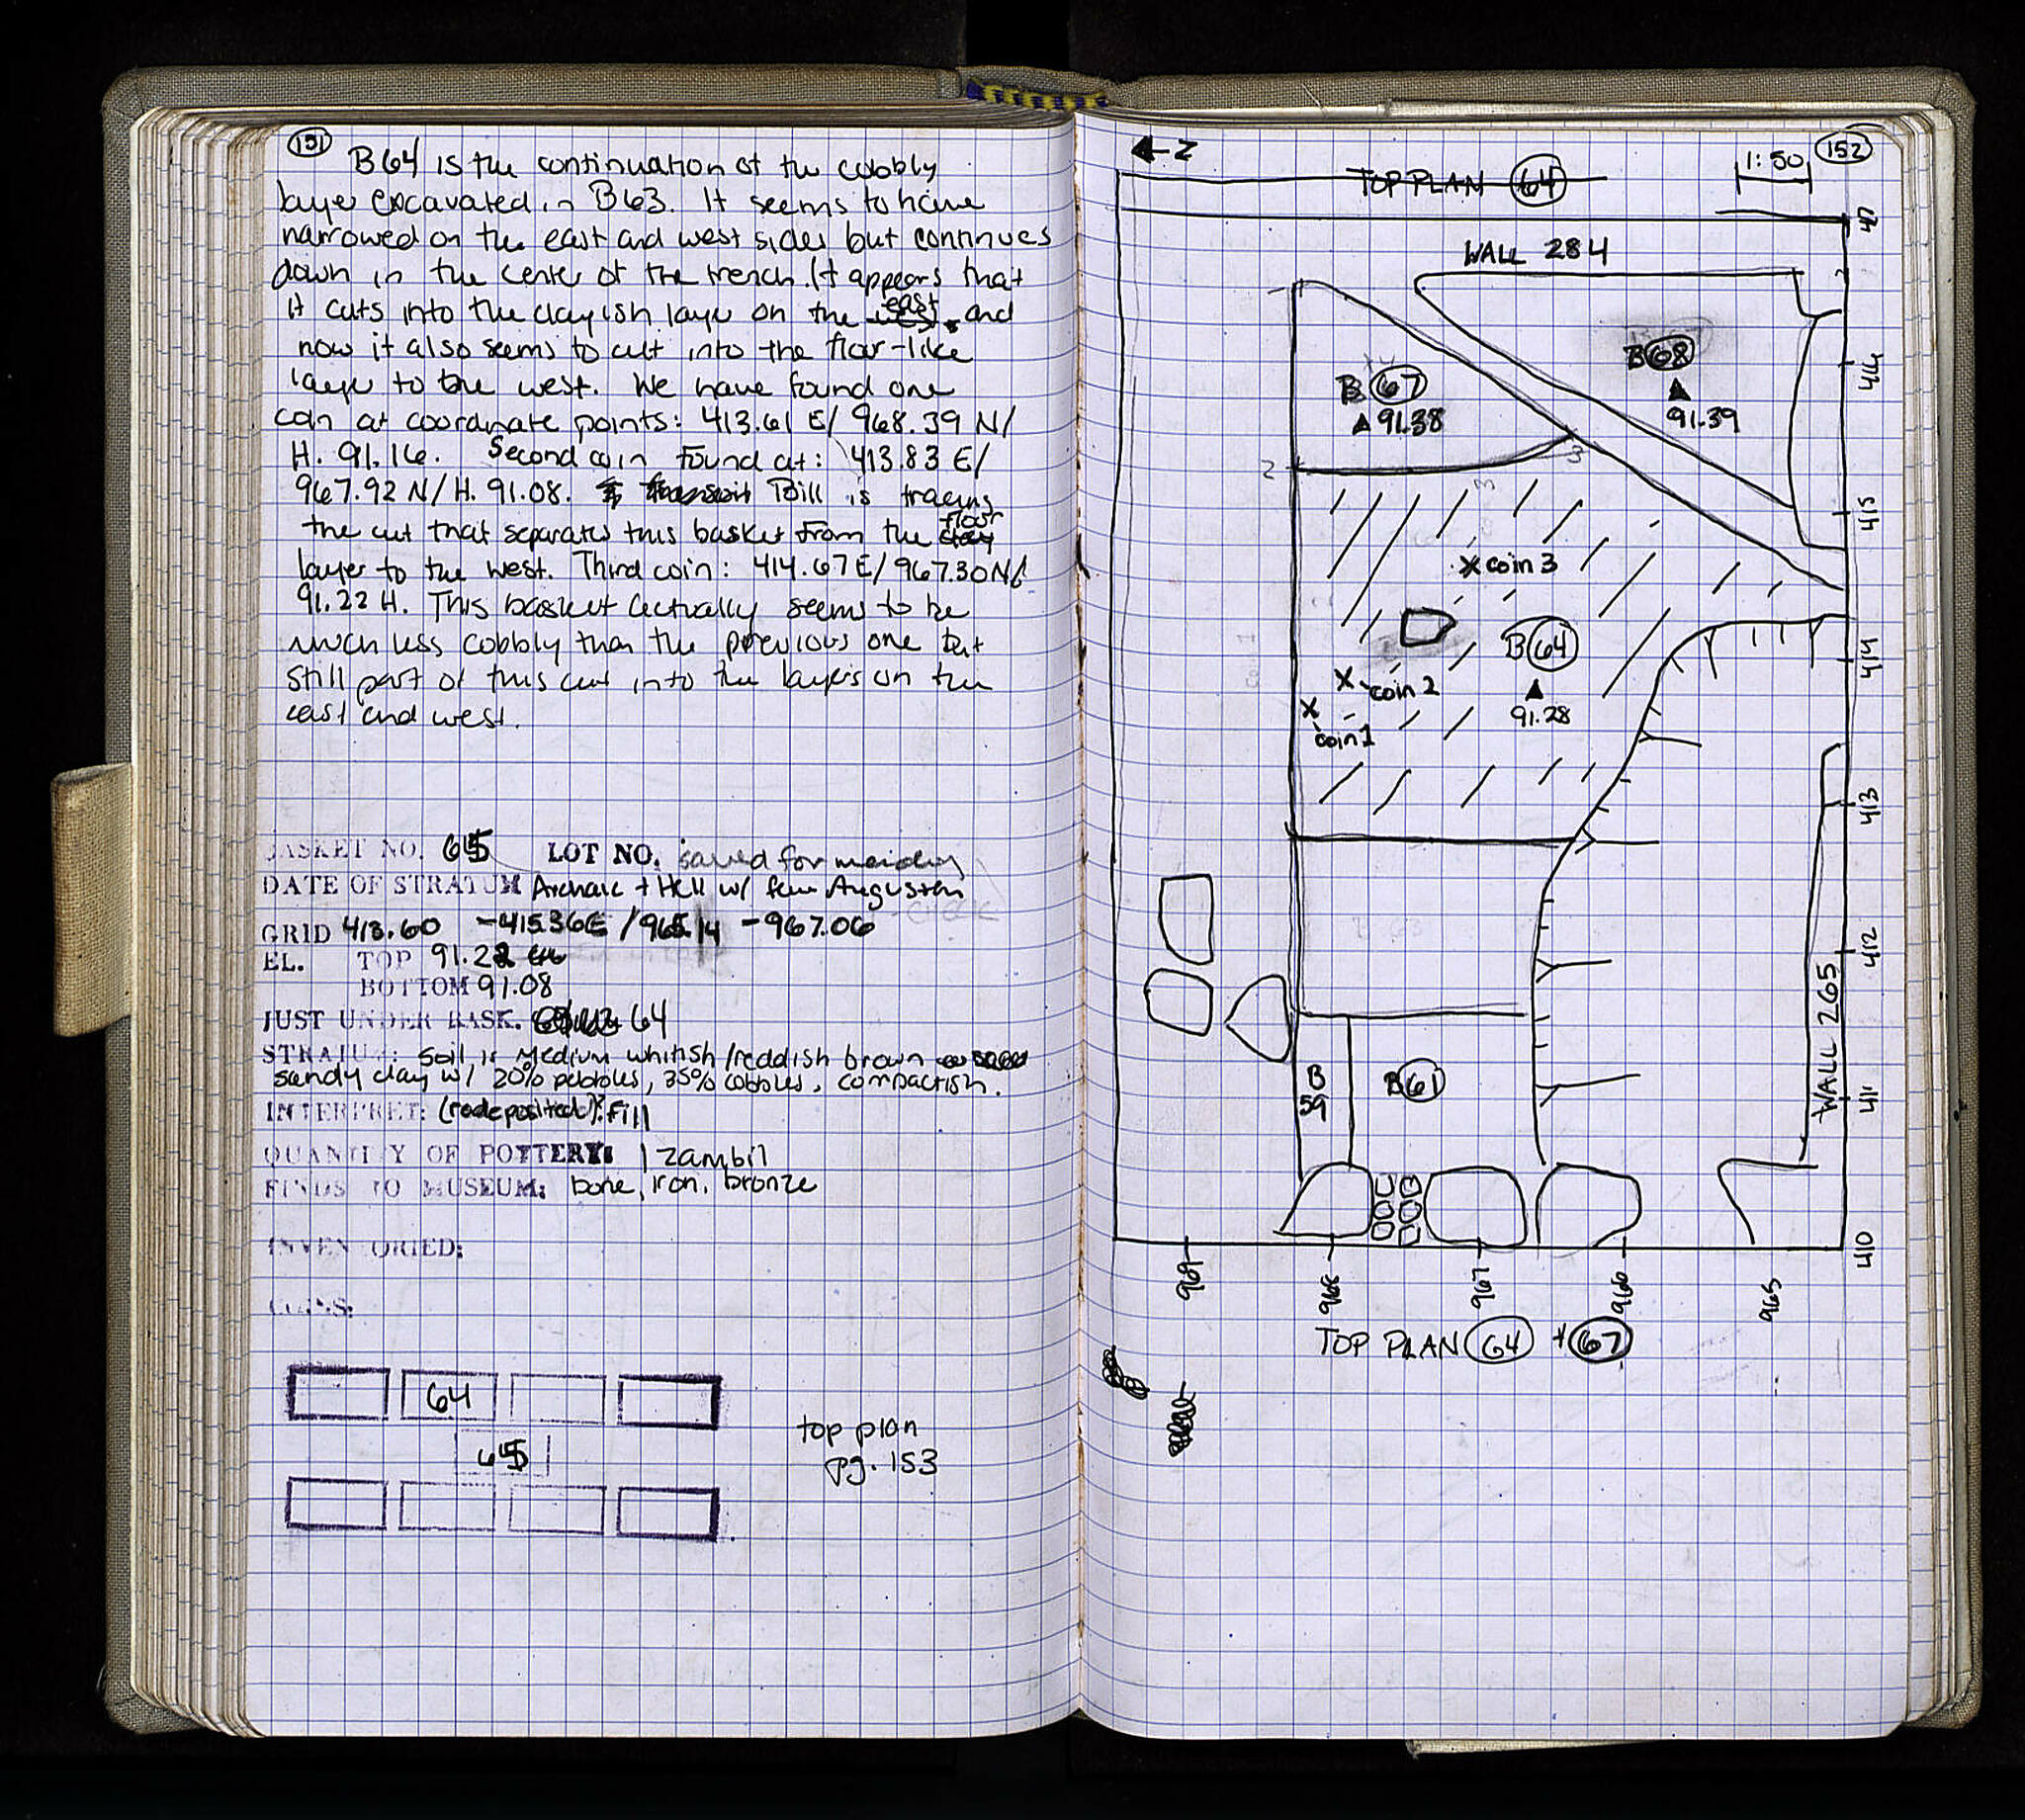 151
B64 is the continuation of the cobbly
layer excavated in B63. It seems to have
narrowed on the east and west sides but continues
down in the center of the trench. It appears that
it cuts into the clayish layer on the east, and
now it also seems to cut into the floor-like
layer to the west. We have found one
coin at coordinate points: 413.61 E/ 968.39 N/
H. 91.16. Second coin found at: 413.83 E/
967.92 N/H. 91.08. Bill is tracing
the cut that separates this basket from the floor
layer to the west. Third coin: 414.67E/967.30N/
91.22 H. This basket actually seems to be
much less cobbly than the previous one but
still part of this cut into the layers on the
east and west.
BASKET NO. 65 LOT NO. saved for mending
DATE OF STRATUM Archaic + Hell w/ few Augustan
GRID 413.60 -415.36E /965.14 -967.06
EL. TOP 91.22
BOTTOM 91.08
JUST UNDER BASK. 64
STRATUM: Soil is medium whitish/reddish brown
sandy clay w/ 20% pebbles, 35% cobbles, compactish.
INTERPRET: (redeposited)? fill
QUANTITY OF POTTERY: 1 zambil
FINDS TO MUSEUM: bone, iron, bronze
INVENTORIED:
COINS:
64
65
top plan
pg. 153
N
TOP PLAN 64
1:50
152
WALL 284
B 67
91.38
B68
91.39
2
3
coin 3
B64
91.28
coin 2
coin 1
B
59
B61
WALL 265
415
414
413
412
411
410
969
968
967
966
965
TOP PLAN 64 + 67